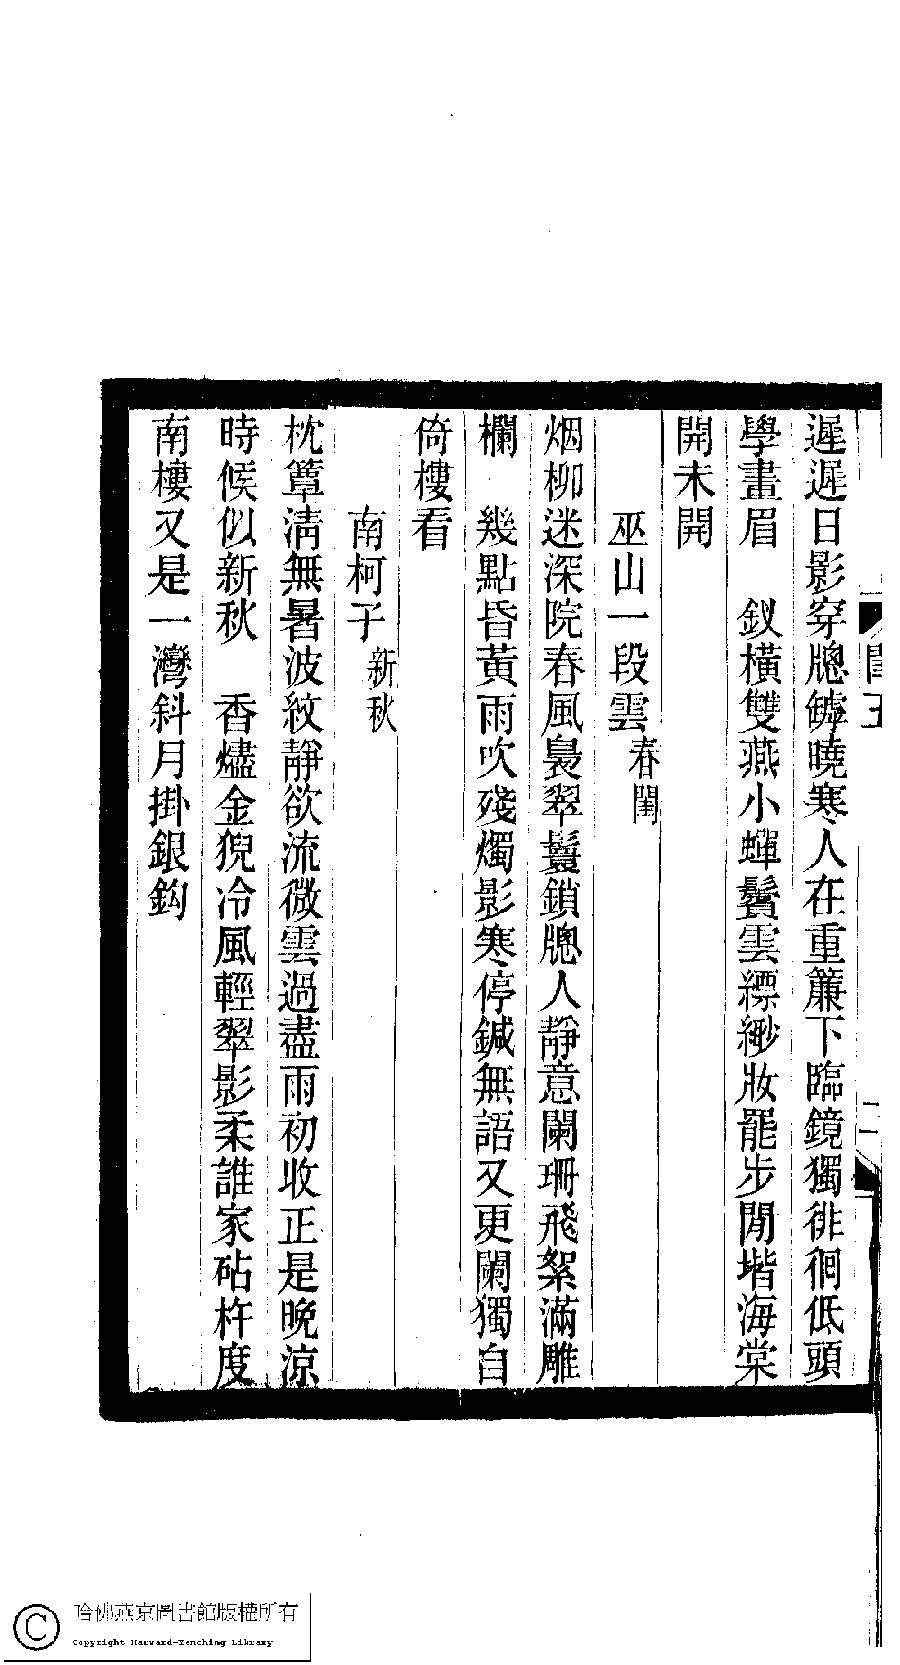 遲遲日影穿牕罅曉寒人在重簾下臨鏡獨徘徊低頭
學畫眉　釵橫雙燕小蟬鬢雲縹緲妝罷步閒堦海棠
開未開
巫山一段雲春閨
烟柳迷深院春風裊翠鬟鎖牕人靜意闌珊飛絮滿雕
欄　幾點昏黃雨吹殘燭影寒停鍼無語又更闌獨自
倚樓看
南柯子新秋
枕簟清無暑波紋靜欲流微雲過盡雨初收正是晚涼
時候似新秋　香燼金猊冷風輕翠影柔誰家砧杵度
南樓又是一灣斜月掛銀鈎
哈佛燕京圖書館版權所有
Copyright Harvard-Yenching Library